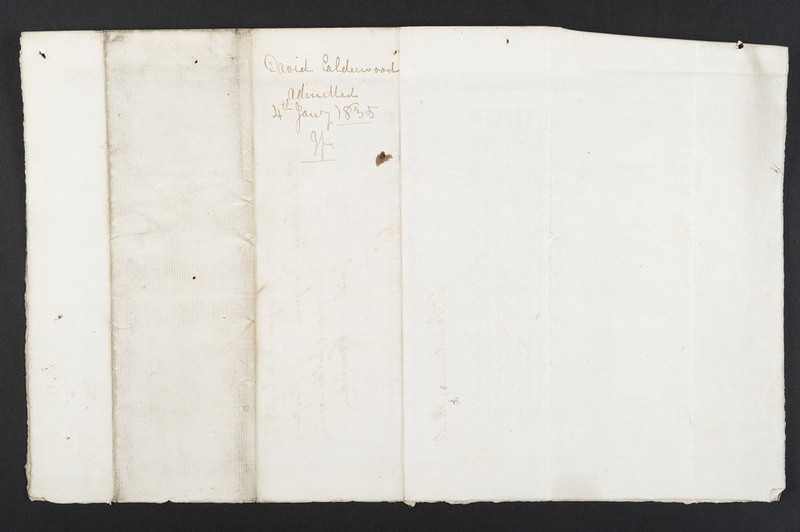 David Calderwood
Admitted
4th Jany 1835